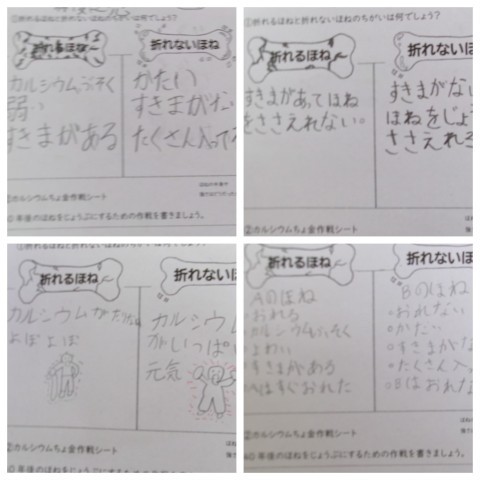 ①折れるほねと折れないほねのちがいは何でしょう?
折れるほね
折れないほね
カルシウムぶそく
弱い
すきまがある
かたい
すきまがな
たくさん入って
②カルシウムちょ金作戦シート
年後のほねをじょうぶにするための作戦を書きましょう。
①折れるほねと折れないほねのちがいは何でしょう?
折れるほね
折れないほね
すきまがあってほね
をささえれない。
すきまがな
ほねをじょ
ささえれる
②カルシウムちょ金作戦シート
折れるほねと折れないほねのちがいは何
折れるほね
折れないほ
カルシウムが
よぼよぼ
カルシウ
がいっぱい
元気
②カルシウムちょ金作戦シート
年後のほねをじょうぶにするための作戦を書きま
折れるほね
折れないほ
Aのほね
・おれる
・カルシウムぶそく
・よわい
・すきまがある
・Aはすぐおれた
Bのほね
・おれない
・かたい
・すきまがな
・たくさん入
・Bはおれな
②カルシウムちょ金作戦シート
年後のほねをじょうぶにするための作戦を書きま